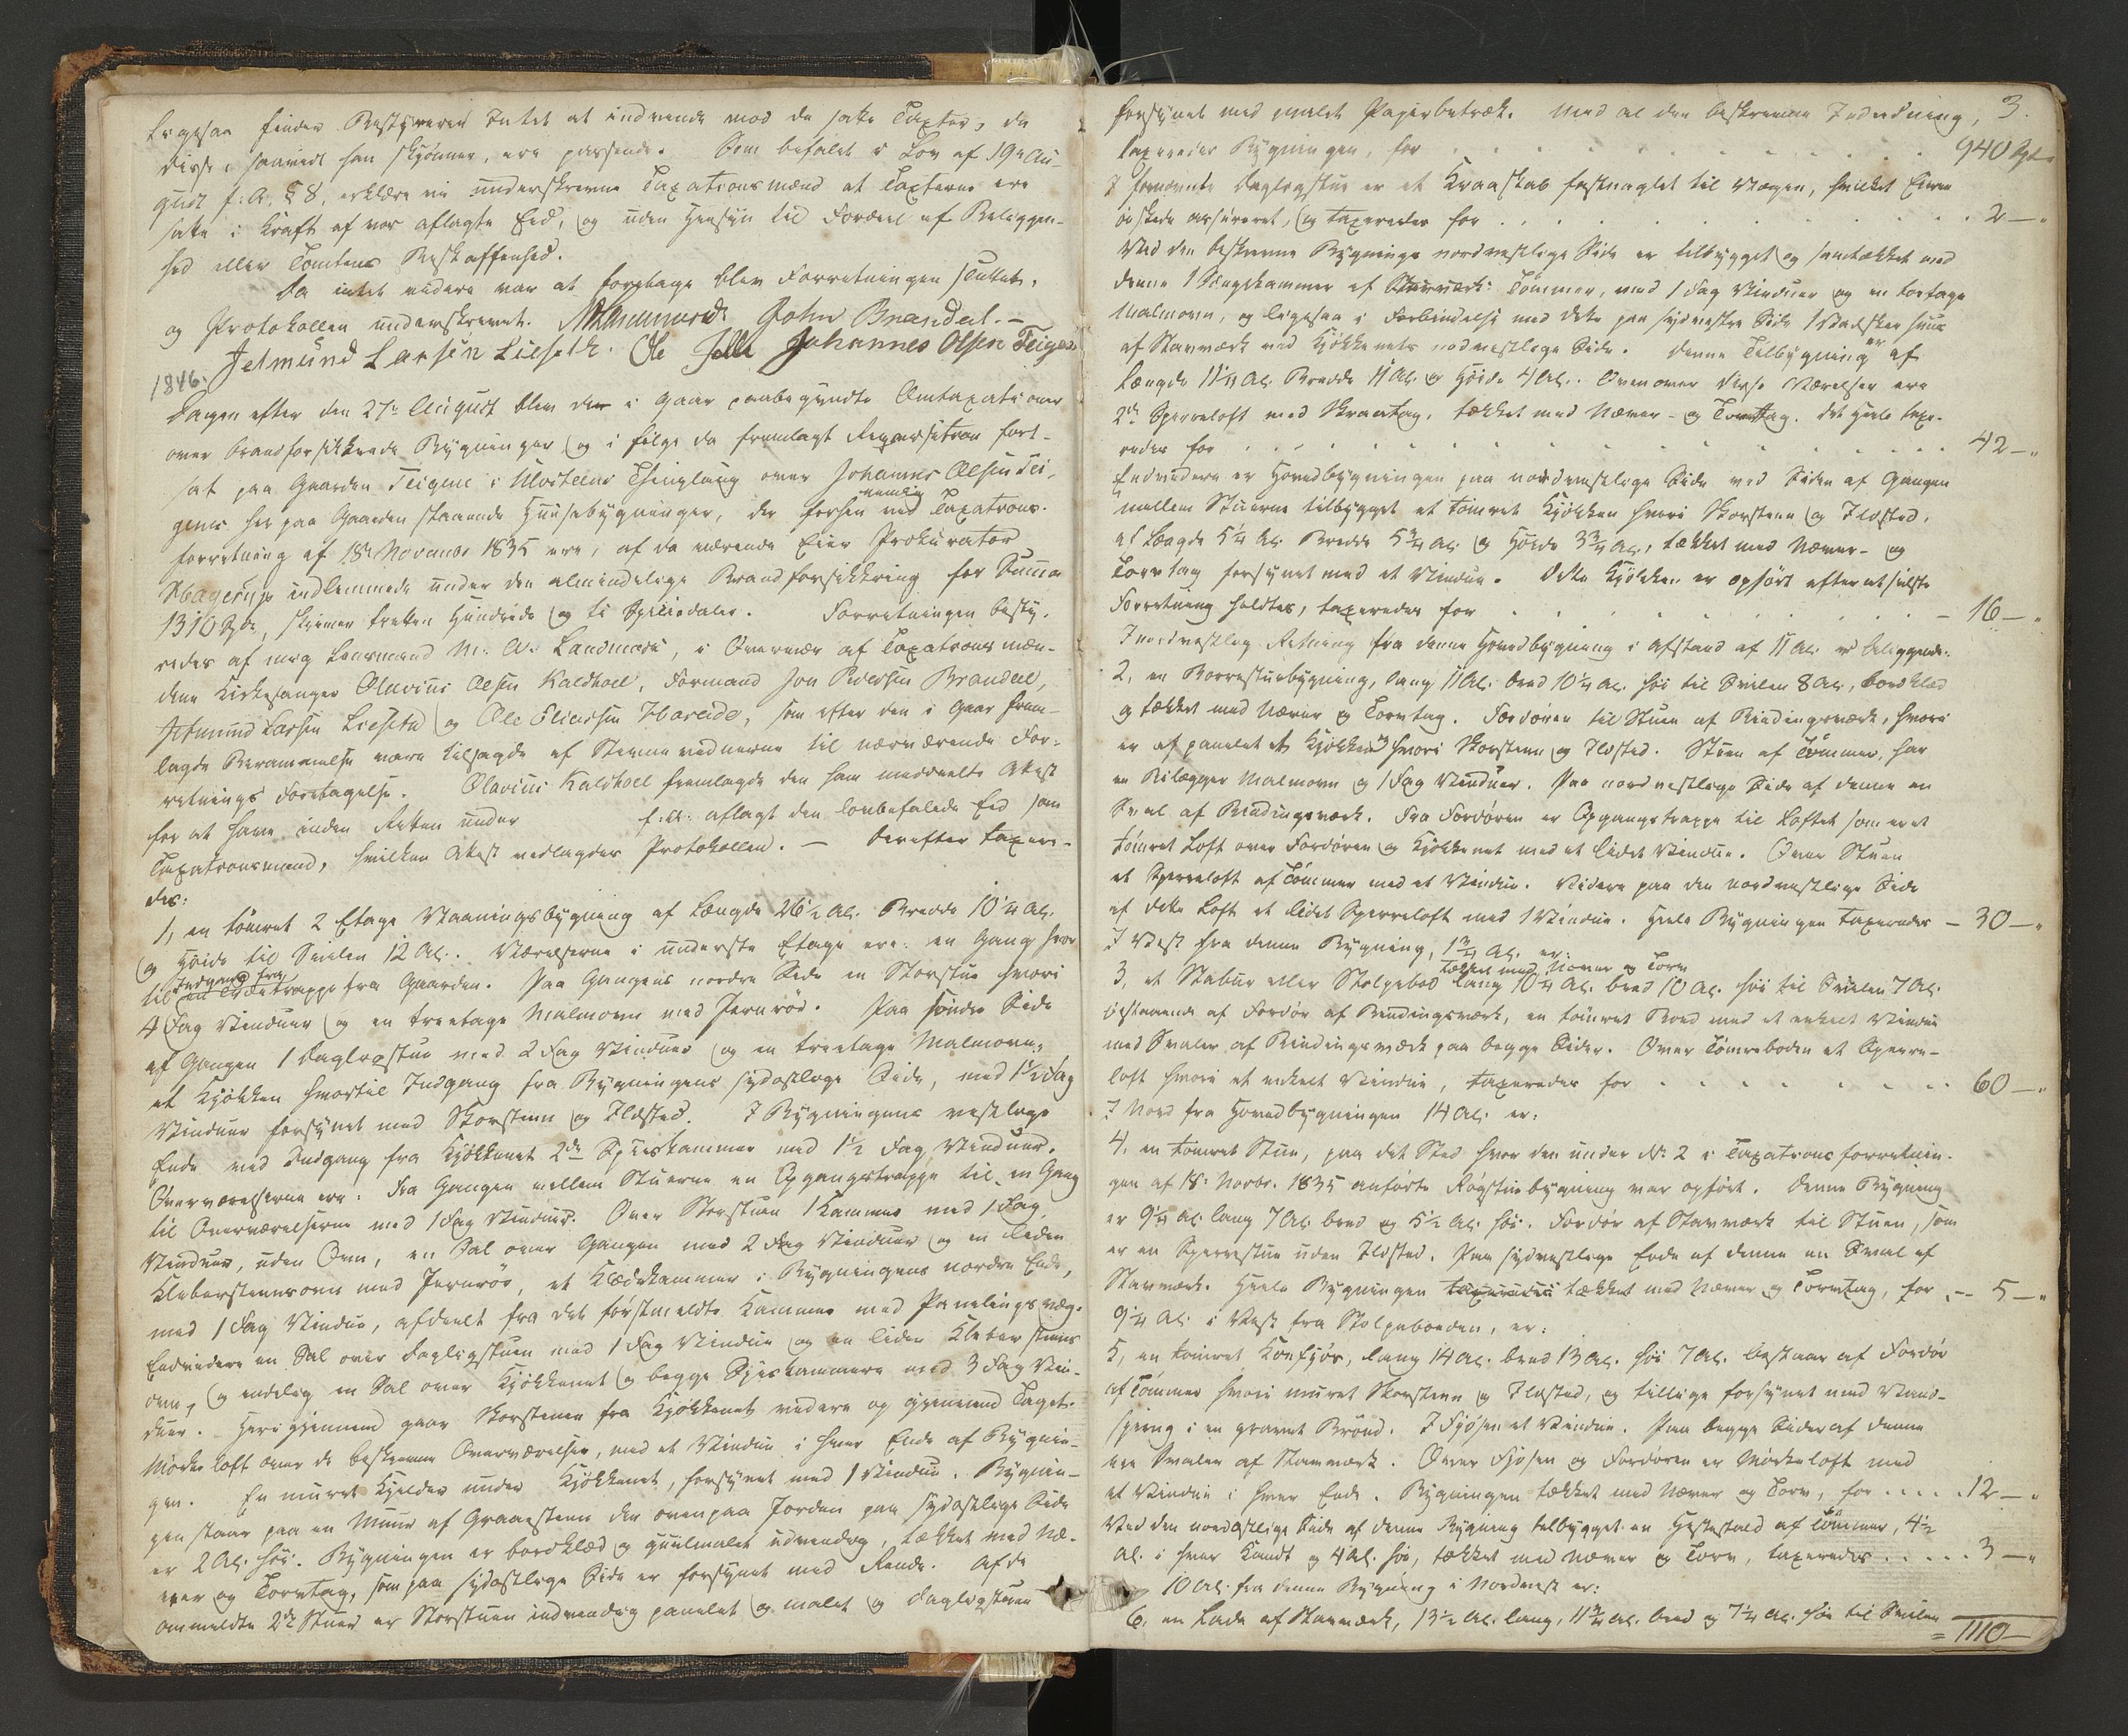 ligesaa finder Bestyreren Intet at indvende mod de satte Taxter, da
disse, saavidt han skjønner, ere passende. Som befalet i Lov af 19de Au-
gust f. A. § 8, erklære vi underskrevne Taxationsmænd at Taxterne ere
satte i Kraft af vor aflagte Eed, og uden Hensyn til Fordeel af Beliggen-
hed eller Tomtens Beskaffenhed.
Da intet videre var at foretage blev Forretningen sluttet,
og Protokollen underskrevet. John Brandal.-
Jetmund Larsen Lieseth. Ole Johannes Olsen Teigen
1846.
Dagen efter den 27de August blev den i Gaar paabegyndte Omtaxationer
over brandforsikkrede Bygninger og i følge da fremlagt Reqvisition fort-
sat paa Gaarden Teigene i Ulvsteens Thinglaug over Johannes Olsen Tei-
genes her paa Gaarden staaende Huusebygninger, der forhen nemlig ved Taxations-
forretning af 18de Novembr 1835 ere, af da værende Eier Prokurator
Hagerup indlemmede under den almindelige Brandforsikkring for Summa
1310 Spd, skriver tretten Hundrede og ti Speciedaler. Forretningen besty-
redes af mig Lensmand M. A. Landmark, i Overvær af Taxationsmæn-
dene Kirkesanger Olavius Olsen Kaldhoel, Formand Jon Pedersen Brandal,
Jetmund Larsen Lieseth og Ole Eliassen Hareide, som efter den i Gaar frem-
lagde Berammelse vare tilsagde af Stevnevidnerne til nærværende For-
retnings Foretagelse. Olavius Kaldhoel fremlagde den ham meddeelte Attest
for at have inden Retten under f. A. aflagt den lovbefalede Eed som
Taxationsmand, hvilken Attest vedlagdes Protokollen. — Derefter taxere-
des:
1, en tømret 2 Etage Vaaningsbygning af Længde 26½ Al. Bredde 10¼ Al.
og Høide til Svilen 12 Al. Værelserne i underste Etage ere: en Gang hvor
til Indgang fra en Trætrappe fra Gaarden. Paa Gangens nordre Side en Storstue hvori
4 Fag Vinduer og en treetage Malmovn med Jernrør. Paa søndre Side
af Gangen 1 Dagligstue med 2 Fag Vinduer og en treetage Malmovn,
et Kjøkken hvortil Indgang fra Bygningens sydostlige Side, med 1½ Fag
Vinduer forsynet med Skorsteen og Ildsted. I Bygningens vestlige
Ende med Indgang fra Kjøkkenet 2de Spiiskammer med 1½ Fag Vinduer.
Overværelserne ere: Fra Gangen mellem Stuerne en Opgangstrappe til en Gang
til Overværelserne med 1 Fag Vinduer. Over Storstuen 1 Kammer med 1 Fag
Vinduer, uden Ovn, en Sal over Gangen med 2 Fag Vinduer og en liden
Klebersteensovn med Jernrør, et Klædekammer i Bygningens nordre Ende,
med 1 Fag Vindue, afdeelt fra det førstmeldte Kammer med Panelingsvæg.
Endvidere en Sal over Dagligstuen med 1 Fag Vindue og en liden Klebersteens
ovn, og endelig en Sal over Kjøkkenet og begge Spiiskammere med 3 Fag Vin-
duer. Heri gjennem gaar Skorstenen fra Kjøkkenet videre op gjennem Taget.
Mørkeloft over de beskrevne Overværelser, med et Vindue i hver Ende af Bygnin-
gen. En muret Kjelder under Kjøkkenet, forsynet med 1 Vindue. Bygnin-
gen staar paa en Muur af Graasteen der ovenpaa Jorden paa sydostlige Side
er 2 Al. høi. Bygningen er bordklæd og guulmalet udvendig, tækket med Næ-
ver og Torvtag, som paa sydostlige Side er forsynet med Rende. Af de
ommeldte 2de Stuer er Storstuen indvendig panelet og malet og Dagligstuen
forsynet med malet Papirbetræk. Med al den beskrevne Indredning, 3.
taxeredes Bygningen, for 940 Spd.
I fornævnte Dagligstue er et Kraaskab fastnaglet til Væggen, hvilket Eieren
ønskede assureret, og taxeredes for 2—"
Ved den beskrevne Bygnings nordvestlige Side er tilbygget og samtækket med
denne 1 Sengekammer af Tømmer, med 1 Fag Vinduer og en toetage
Malmovn, og ligesaa i Forbindelse med dette paa sydvestre Side 1
af Stavværk ved Kjøkkenets nordvestlige Side. Denne Tilbygning er af
Længde 11¼ Al. Bredde 11 Al. og Høide 4 Al. Ovenover disse Værelser ere
2de Sperreloft med Skraatag, tækket med Næver- og Torvtag. Det Hele taxe-
redes for 42—"
Endvidere er Hovedbygningen paa nordvestlige Side ved Siden af Gangen
mellem Stuerne tilbygget et tømret Kjøkken hvori Skorsteen og Ildsted,
af Længde 5¼ Al. Bredde 5¾ Al. og Høide 3¾ Al., tækket med Næver- og
Torvtag forsynet med et Vindue. Dette Kjøkken er opført efter at sidste
Forretning holdtes, taxeredes for 16—"
I nordvestlig Retning fra denne Hovedbygning i Afstand af 11 Al. er beliggende:
2, en Borrestuebygning, lang 11 Al. bred 10¼ Al. høi til Svilen 8 Al., bordklæd
og tækket med Næver og Torvtag. Fordøren til Stuen af Bindingsværk, hvori
er af panelet et Kjøkken hvori Skorsteen og Ildsted. Stuen af Tømmer, har
en Bilægger Malmovn og 1 Fag Vinduer. Paa nordvestlige Side af denne en
Sval af Bindingsværk. Fra Fordøren er Opgangstrappe til Loftet som er et
tømret Loft over Fordøren og Kjøkkenet med et lidet Vindue. Over Stuen
et Sperreloft af Tømmer med et Vindue. Videre paa den nordvestlige Side
af dette Loft et lidet Sperreloft med 1 Vindue. Hele Bygningen taxeredes — 30—"
I Vest fra denne Bygning, 1¾ Al. er:
3, et Stabur eller Stolpebod tækket med Næver og Torv lang 10¼ Al. bred 10 Al. høi til Svilen 7 Al.
bestaaende af Fordør af Bindingsværk, en tømret Boed med et enkelt Vindue
med Svaler af Bindingsværk paa begge Sider. Over Tømreboden et Sperre-
loft hvori et enkelt Vindue, taxeredes for 60—"
I Nord fra Hovedbygningen 14 Al. er:
4, en tømret Stue, paa det Sted hvor den under No. 2 i Taxationsforretnin-
gen af 18. Novbr. 1835 anførte Røgstuebygning var opført. Denne Bygning
er 9¼ Al. lang 7 Al. bred og 5½ Al. høi. Fordør af Stavværk til Stuen, som
er en Sperrestue uden Ildsted. Paa sydvestlige Ende af denne en Sval af
Stavværk. Hele Bygningen taxeredes tækket med Næver og Torvtag, for — 5—"
9¼ Al. i Vest fra Stolpeboeden, er:
5, en tømret Koefjøs, lang 14 Al. bred 13 Al. høi 7 Al. bestaar af Fordør
af Tømmer hvori muret Skorsteen og Ildsted, og tillige forsynet med Vand-
spring i en gravet Brønd. I Fjøsen et Vindue. Paa begge Sider af denne
ere Svaler af Stavværk. Over Fjøsen og Fordøren er Mørkeloft med
et Vindue i hver Ende. Bygningen tækket med Næver og Torv, for 12—"
Ved den nordostlige Side af denne Bygning tilbygget en Hestestald af Tømmer, 4½
Al. i hver Kandt og 4 Al. høi, tækket med Næver og Torv, taxeredes 3—"
10 Al. fra denne Bygning i Nordvest er:
6, en Lade af Stavværk, 13½ Al. lang, 11¾ Al. bred og 7¼ Al. høi til Svilen
= 1110—